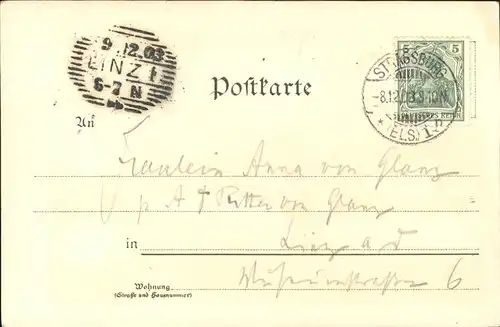 9.12.03
LINZ 1
6-7 N
Postkarte
5 5
STRASSBURG
8.12.03.
(ELS.) 1.
REICH
An
Fräulein Anna von Glanz
p A Ritter von Glanz
in Linz a d
Museumstrasse 6
Wohnung
(Straße und Hausnummer)